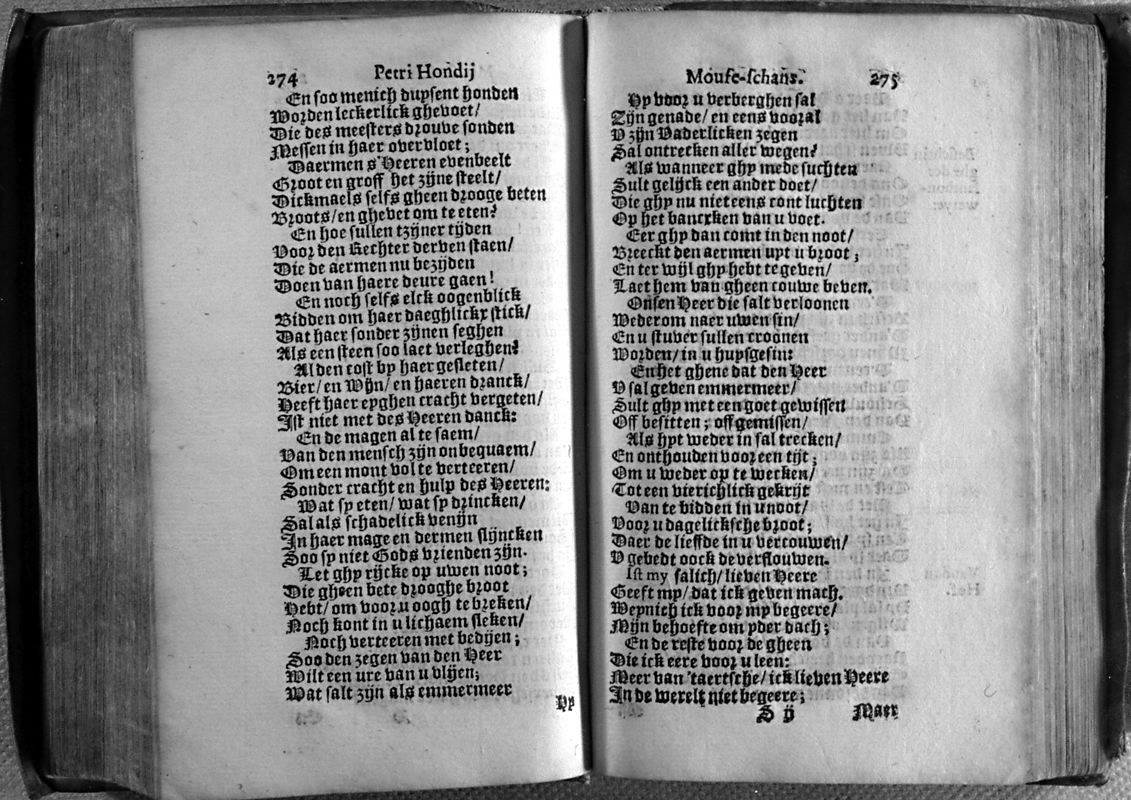 274 Petri Hondij
En soo menich duysent honden
Worden leckerlick ghevoet/
Die des meesters drouve sonden
Messen in haer overvloet;
Daermen s'Heeren evenbeelt
Groot en groff het zijne steelt/
Dickmaels selfs gheen drooge beten
Broots/ en ghevet om te eten?
En hoe sullen tzijner tijden
Voor den Rechter derven staen/
Die de aermen nu bezijden
Doen van haere deure gaen!
En noch selfs elck oogenblick
Bidden om haer daeghlickx stick/
Dat haer sonder zijnen seghen
Als een steen soo laet verleghen?
Al den cost by haer gesleten/
Bier/ en Wijn/ en haeren dranck/
Heeft haer eyghen cracht vergeten/
Ist niet met des Heeren danck:
En de magen al te saem/
Van den mensch zijn onbequaem/
Om een mont vol te verteeren/
Sonder cracht en hulp des Heeren:
Wat sy eten/ wat sy drincken/
Sal als schadelick venijn
In haer mage en dermen slijncken
Soo sy niet Gods vrienden zijn.
Let ghy rijcke op uwen noot;
Die gheen bete drooghe broot
Hebt/ om voor u oogh te breken/
Noch kont in u lichaem steken/
Noch verteeren met bedijen;
Soo den zegen van den Heer
Wilt een ure van u vlijen;
Wat salt zijn als emmermeer
Hy
Mouse-schans. 275
Hy voor u verberghen sal
Zijn genade/ en eens vooral
V zijn Vaderlicken zegen
Sal ontrecken aller wegen?
Als wanneer ghy mede suchten
Sult gelijck een ander doet/
Die ghy nu niet eens cont luchten
Op het bancxken van u voet.
Eer ghy dan comt in den noot/
Breeckt den aermen uyt u broot;
En ter wijl ghy hebt te geven/
Laet hem van gheen couwe beven.
Onsen Heer die salt verloonen
Wederom naer uwen sin/
En u stuver sullen croonen
Worden/ in u huysgesin:
En het ghene dat den Heer
V sal geven emmermeer/
Sult ghy met een goet gewissen
Off besitten; off gemissen/
Als hyt weder in sal trecken/
En onthouden voor een tijt;
Om u weder op te wecken/
Tot een vierichlick gekrijt
Van te bidden in u noot/
Voor u dagelicksche broot;
Daer de lieffde in u vercouwen/
V gebedt oock de verflouwen.
Ist my salich/ lieven Heere
Geeft my/ dat ick geven mach.
Weynich ick voor my begeere/
Mijn behoefte om yder dach;
En de reste voor de gheen
Die ick eere voor u leen:
Meer van 'taertsche/ ick lieven Heere
In de werelt niet begeere;
S ij Maer